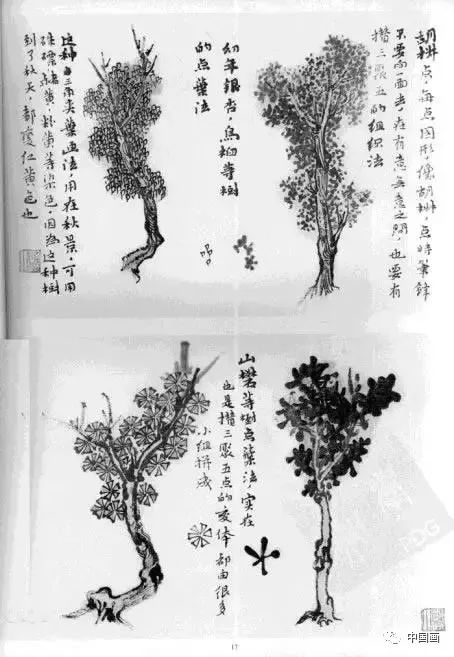 胡椒点，每点圆形，像胡椒，点时筆鋒
只要向一面去，在有意无意之間，也要有
攒三聚五的组织法
幼年银杏，烏桕等樹
的点葉法
这种由三角夹葉画法，用在秋景，可用
硃磦赭黄，粉黄等染色，因為这种樹
到了秋天，都變紅黄色也
山礬等樹点葉法，实在
也是攒三聚五点的变体 都由很多
小组拼成
PDG
17
中国画